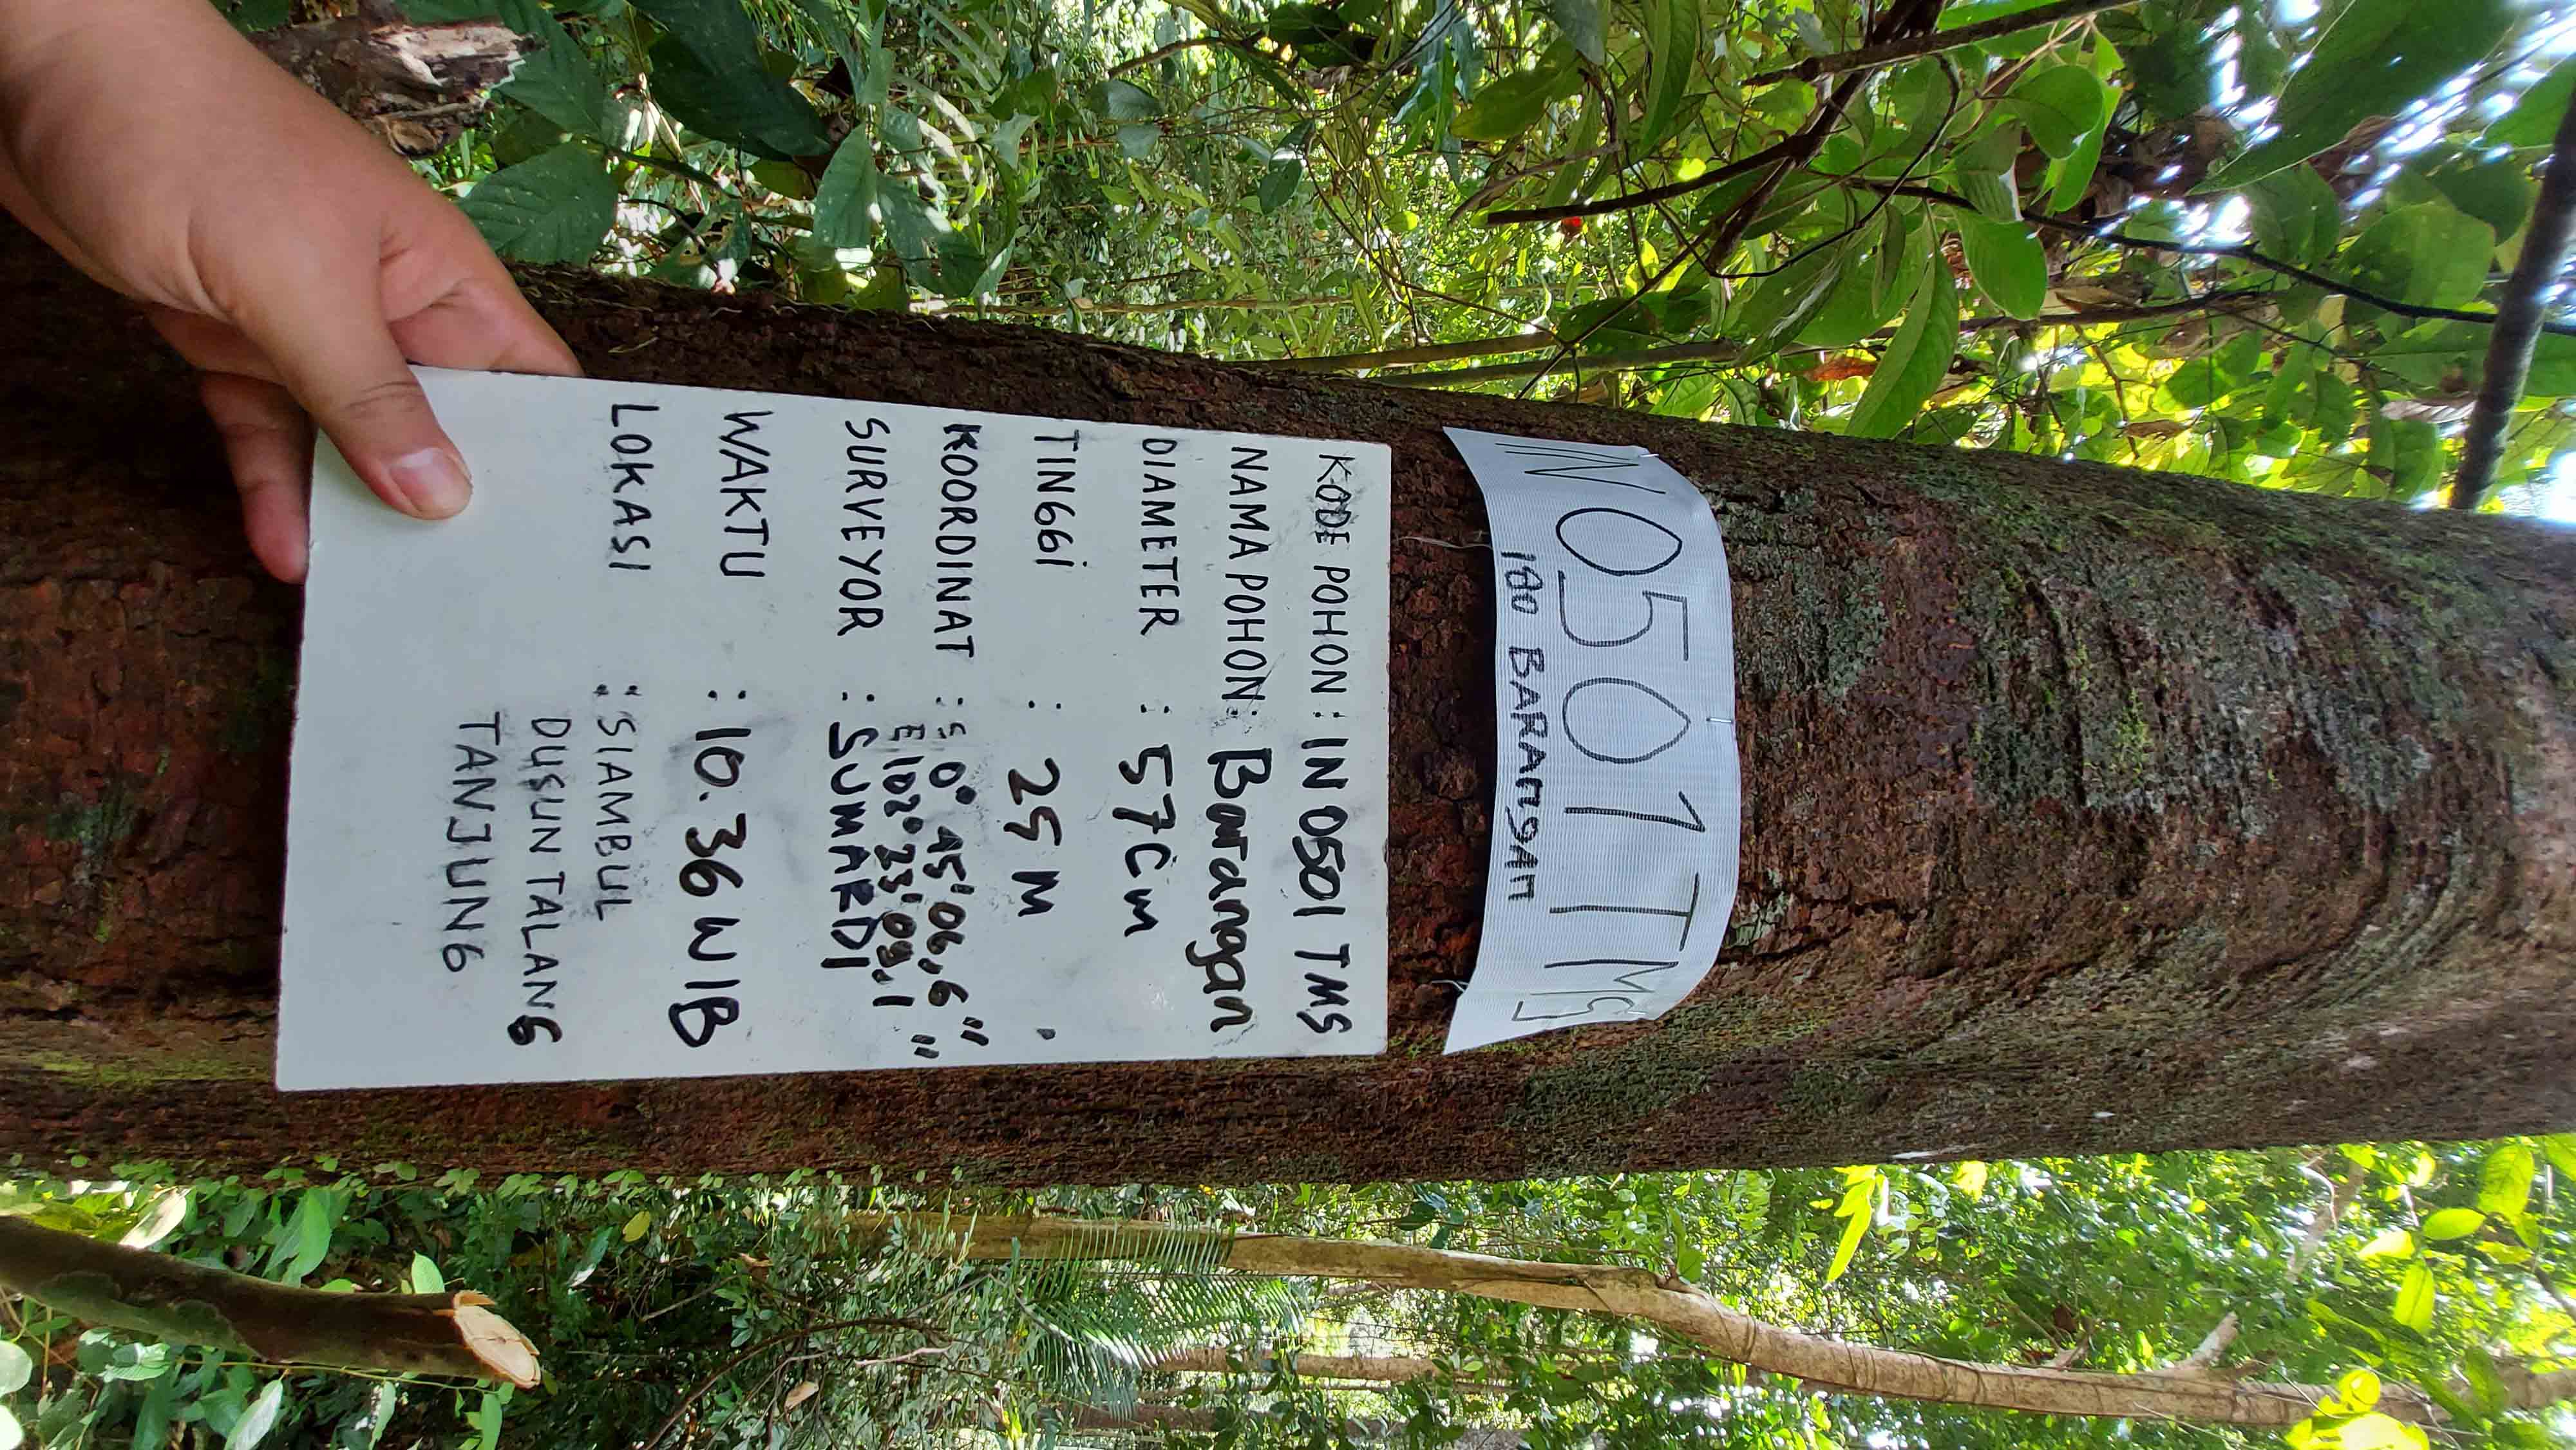 IN 0501 TMS
180 BARANGAN
KODE POHON : IN 0501 TMS
NAMA POHON : Barangan
DIAMETER : 57 Cm
TINGGi : 25 M
KOORDINAT : S 0° 45' 06,6"
E 102° 23' 09,1"
SURVEYOR : SUMARDI
WAKTU : 10.36 WIB
LOKASI : SIAMBUL
DUSUN TALANG
TANJUNG